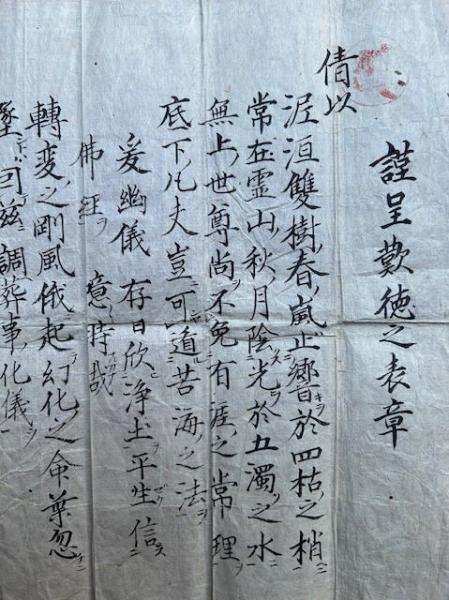 謹呈歎徳之表章
倩以
泥洹雙樹春嵐止響於四枯之梢
常在霊山秋月陰光於五濁之水
無上世尊尚不免有涯之常理
底下凡夫豈可道苦海之法
爰幽儀 存日欣浄土平生信
佛経 意時哉
轉変之剛風俄起幻化之命葉忽
墜 茲調葬事化儀